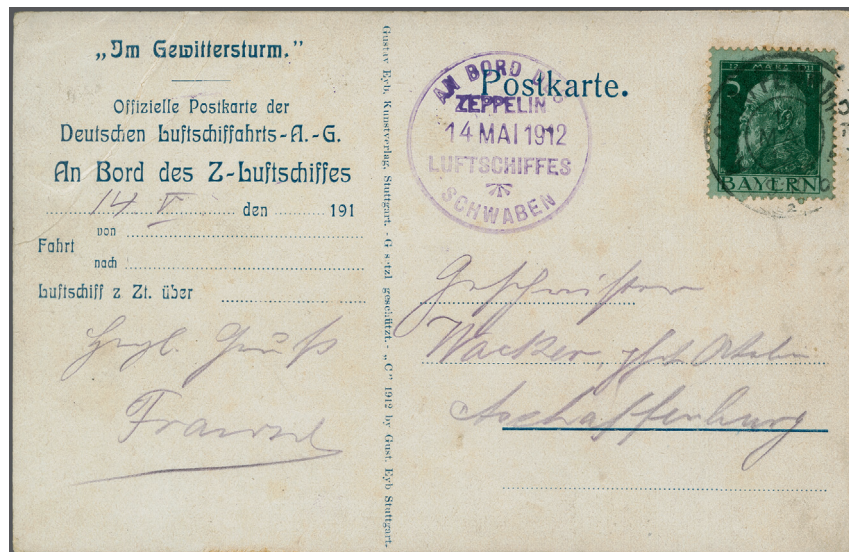 „Im Gewittersturm."
Offizielle Postkarte der
Deutschen Luftschiffahrts-A.-G.
An Bord des Z-Luftschiffes
14 V den 191
Fahrt von
nach
Luftschiff z Zt. über
Herzl. Gruß
Gustav Eyb, Kunstverlag, Stuttgart. - G s tzl geschützt. - „C" 1912 by Gust. Eyb Stuttgart.
Postkarte.
AN BORD DES
ZEPPELIN
14 MAI 1912
LUFTSCHIFFES
SCHWABEN
17 MÄRZ 1911
5
BAYERN
Geschwister
Wacker,
Aschaffenburg